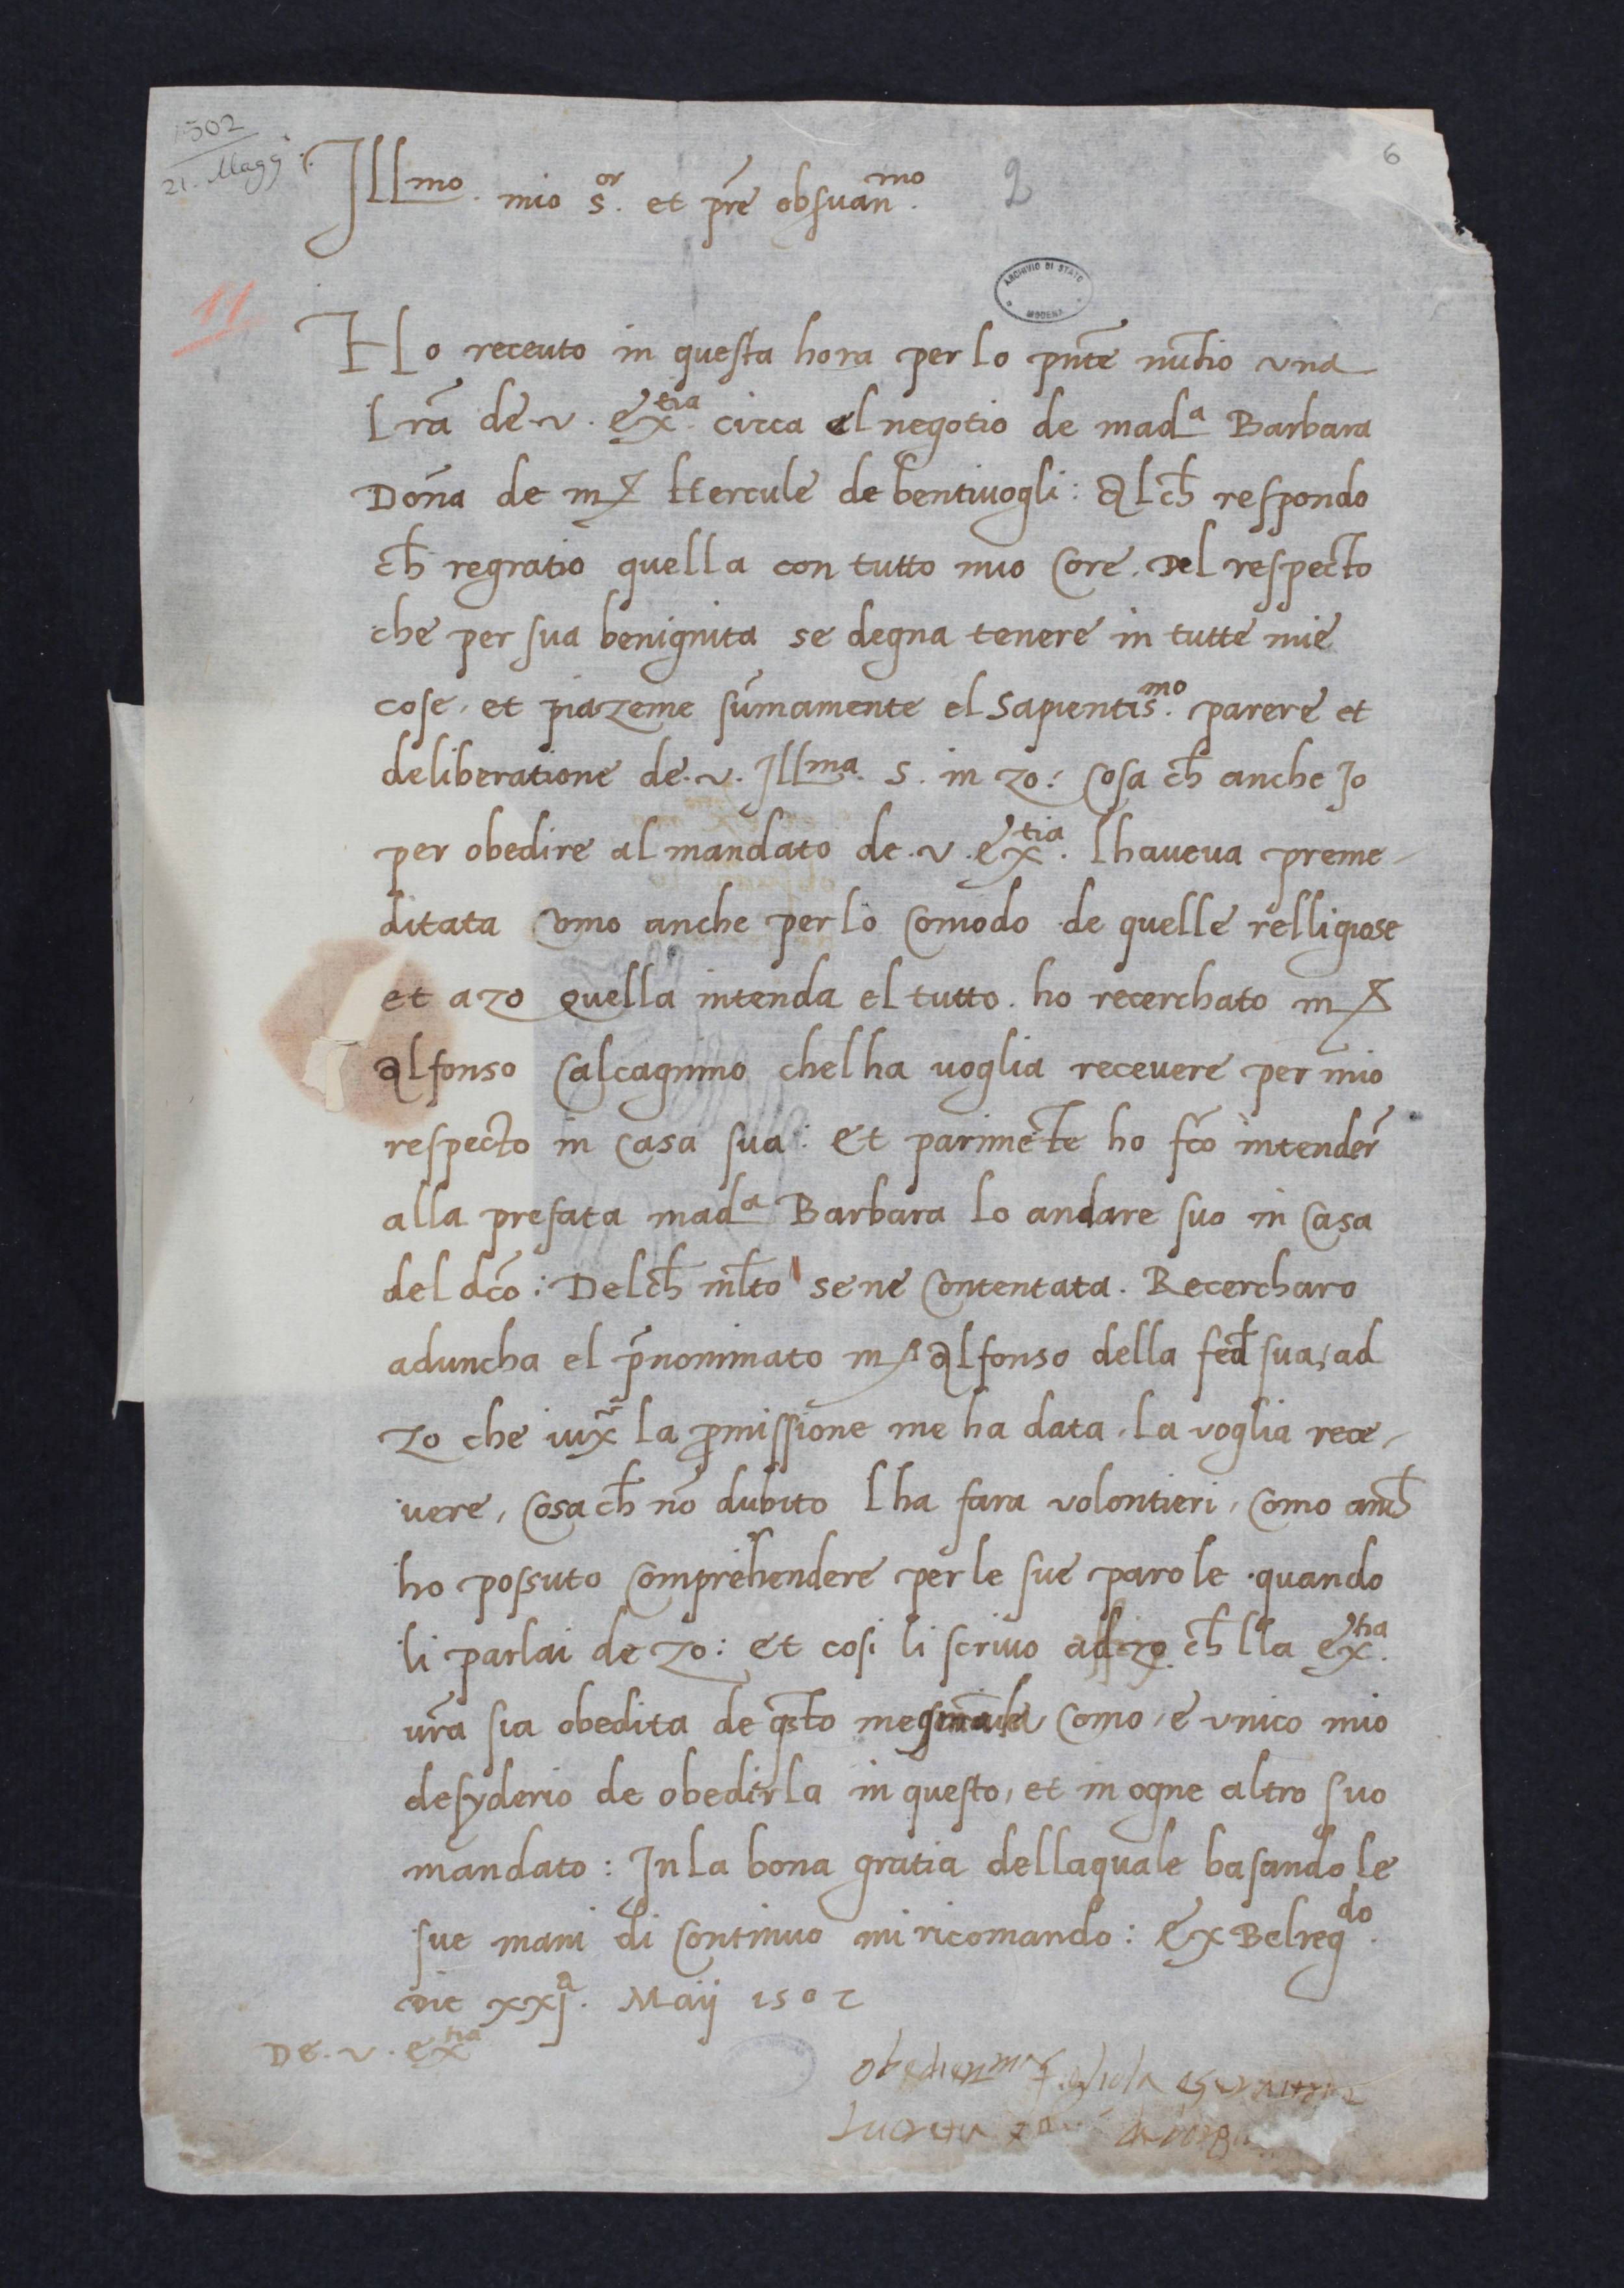 1502
21. Magg.
6
Ill.mo mio S.or et pr̃e obsvan.mo
2
ARCHIVIO DI STATO
MODENA
11
Ho receuto in questa hora per lo pñte nũtio vna
l̃ra de .v. ex.tia circa el negotio de mad.a Barbara
Doña de m̃ Hercule de bentiuogli: Alch̃ respondo
ch̃ regratio quella con tutto mio core. Del respecto
che per sua benignita se degna tenere in tutte mie
cose, et piazeme sũmamente el Sapientis.mo parere et
deliberatione de .v. Ill.ma S. in zo: Cosa ch̃ anche Jo
per obedire al mandato de .v. ex.tia lhaueua preme-
ditata como anche per lo comodo de quelle relligiose
et azo quella intenda el tutto. ho recerchato m̃
Alfonso Calcagnino chel ha uoglia receuere per mio
respecto in casa sua: et parimẽte ho fc̃o intender̃
alla prefata mad.a Barbara lo andare suo in casa
del dc̃o: Delch̃ ml̃to se ne contentata. Recercharo
aduncha el p̃nominato m̃ Alfonso della fed̃ sua, ad
zo che iux̃ la p̃missione me ha data, la voglia rece-
uere, Cosa ch̃ nõ dubito lha fara volontieri, como anch̃
ho possuto comprehendere per le sue parole quando
li parlai de zo: et cosi li scriuo adzo ch̃ lla ex.tia
ur̃a sia obedita de q̃sto como e vnico mio
desyderio de obedirla in questo, et in ogne altro suo
mandato: In la bona gratia dellaquale basandole
sue mani di continuo mi ricomando: Ex Belreg.do
Die xxj.a Maij 1502
De .v. ex.tia
obedien.ma figliola
Lucretia